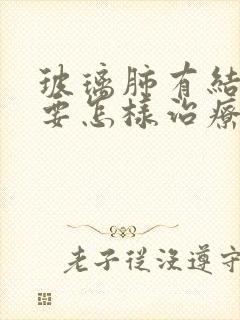 玻璃肺有結
要怎樣治療
老子從沒遵守